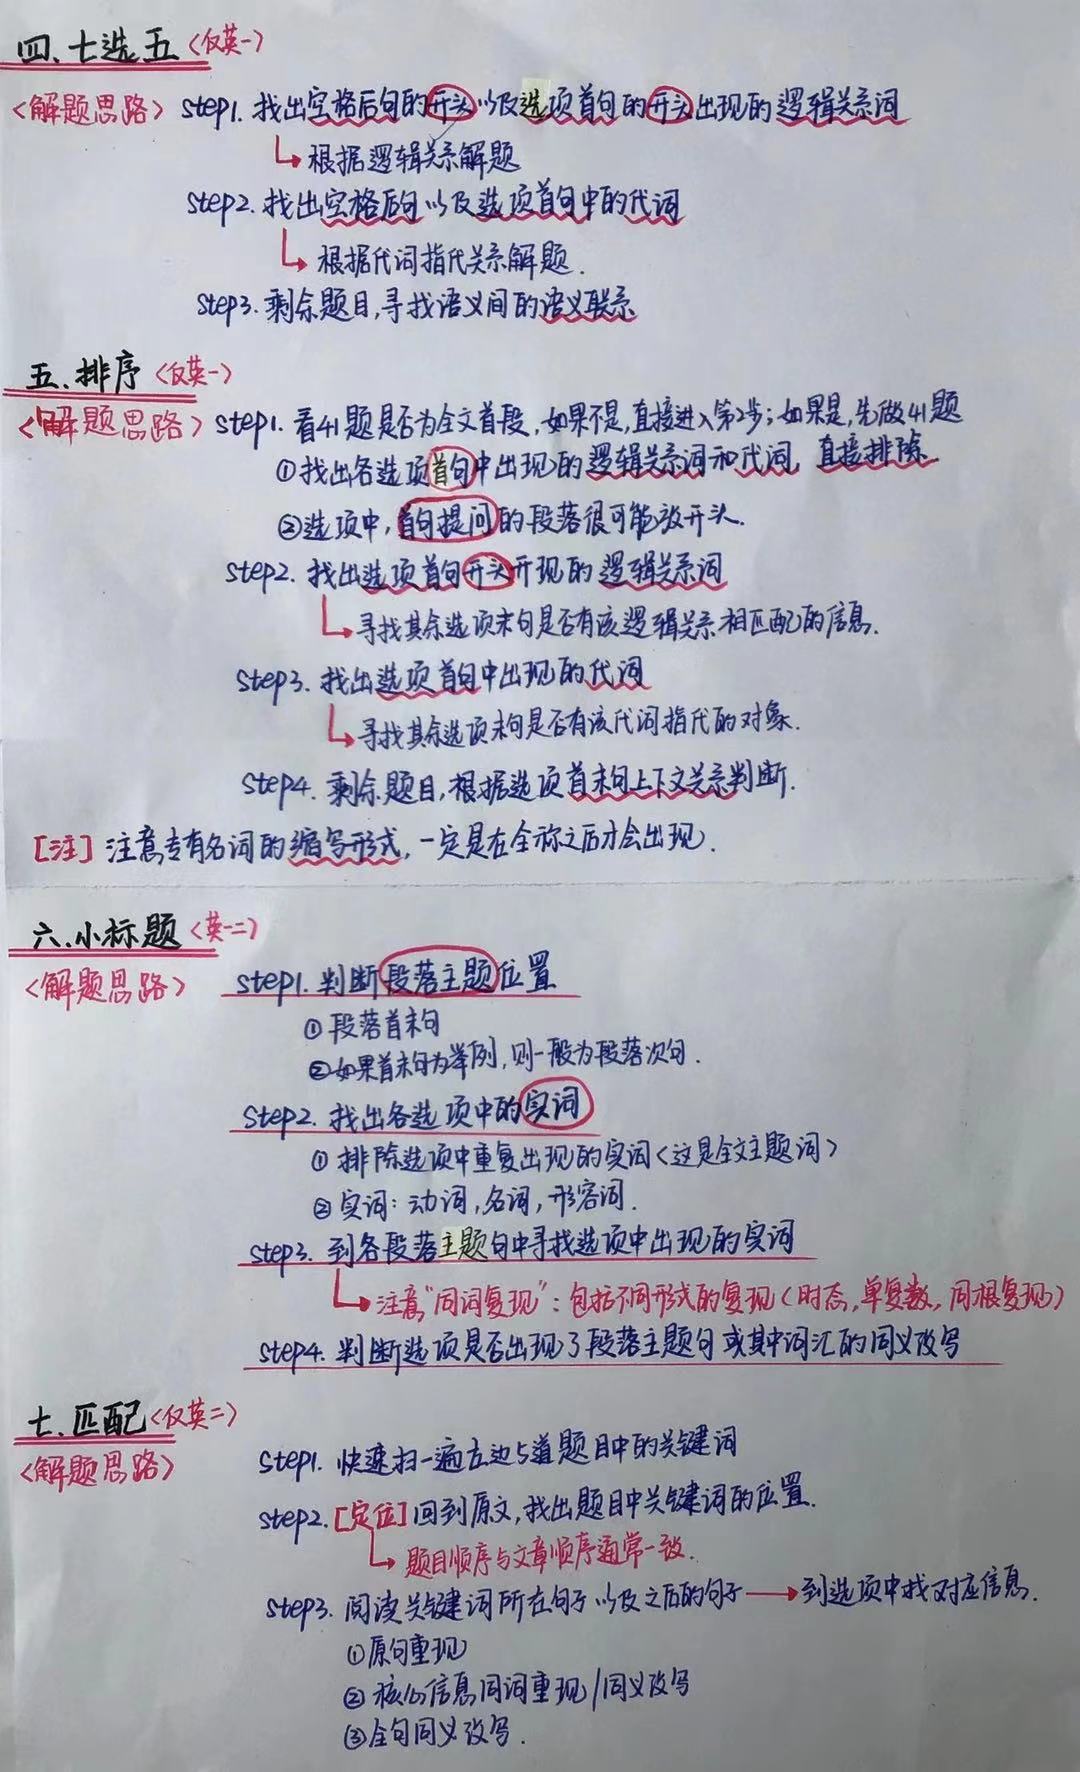 四、七选五〈仅英一〉
〈解题思路〉 step1. 找出空格后句的开头以及选项首句的开头出现的逻辑关系词
根据逻辑关系解题
step2. 找出空格后句以及选项首句中的代词
根据代词指代关系解题.
step3. 剩余题目,寻找语义间的语义联系
五、排序〈仅英一〉
〈解题思路〉 step1. 看41题是否为全文首段,如果不是,直接进入第2步;如果是,先做41题
①找出各选项首句中出现的逻辑关系词和代词,直接排除.
②选项中,首句提问的段落很可能放开头.
step2. 找出选项首句开头开现的逻辑关系词
寻找其余选项末句是否有该逻辑关系相匹配的信息.
step3. 找出选项首句中出现的代词
寻找其余选项末句是否有该代词指代的对象.
step4. 剩余题目,根据选项首末句上下文关系判断.
[注] 注意专有名词的缩写形式,一定是在全称之后才会出现.
六.小标题〈英二〉
〈解题思路〉 step1. 判断段落主题位置
①段落首末句
②如果首末句为举例,则一般为段落次句.
step2. 找出各选项中的实词
①排除选项中重复出现的实词〈这是全文主题词〉
②实词:动词,名词,形容词.
step3. 到各段落主题句中寻找选项中出现的实词
注意"同词复现":包括不同形式的复现(时态,单复数,同根复现)
step4. 判断选项是否出现了段落主题句或其中词汇的同义改写
七.匹配〈仅英二〉
〈解题思路〉 step1. 快速扫一遍左边5道题目中的关键词
step2. [定位]回到原文,找出题目中关键词的位置.
题目顺序与文章顺序通常一致.
step3. 阅读关键词所在句子以及之后的句子→到选项中找对应信息.
①原句重现
②核心信息同词重现/同义改写
③全句同义改写.